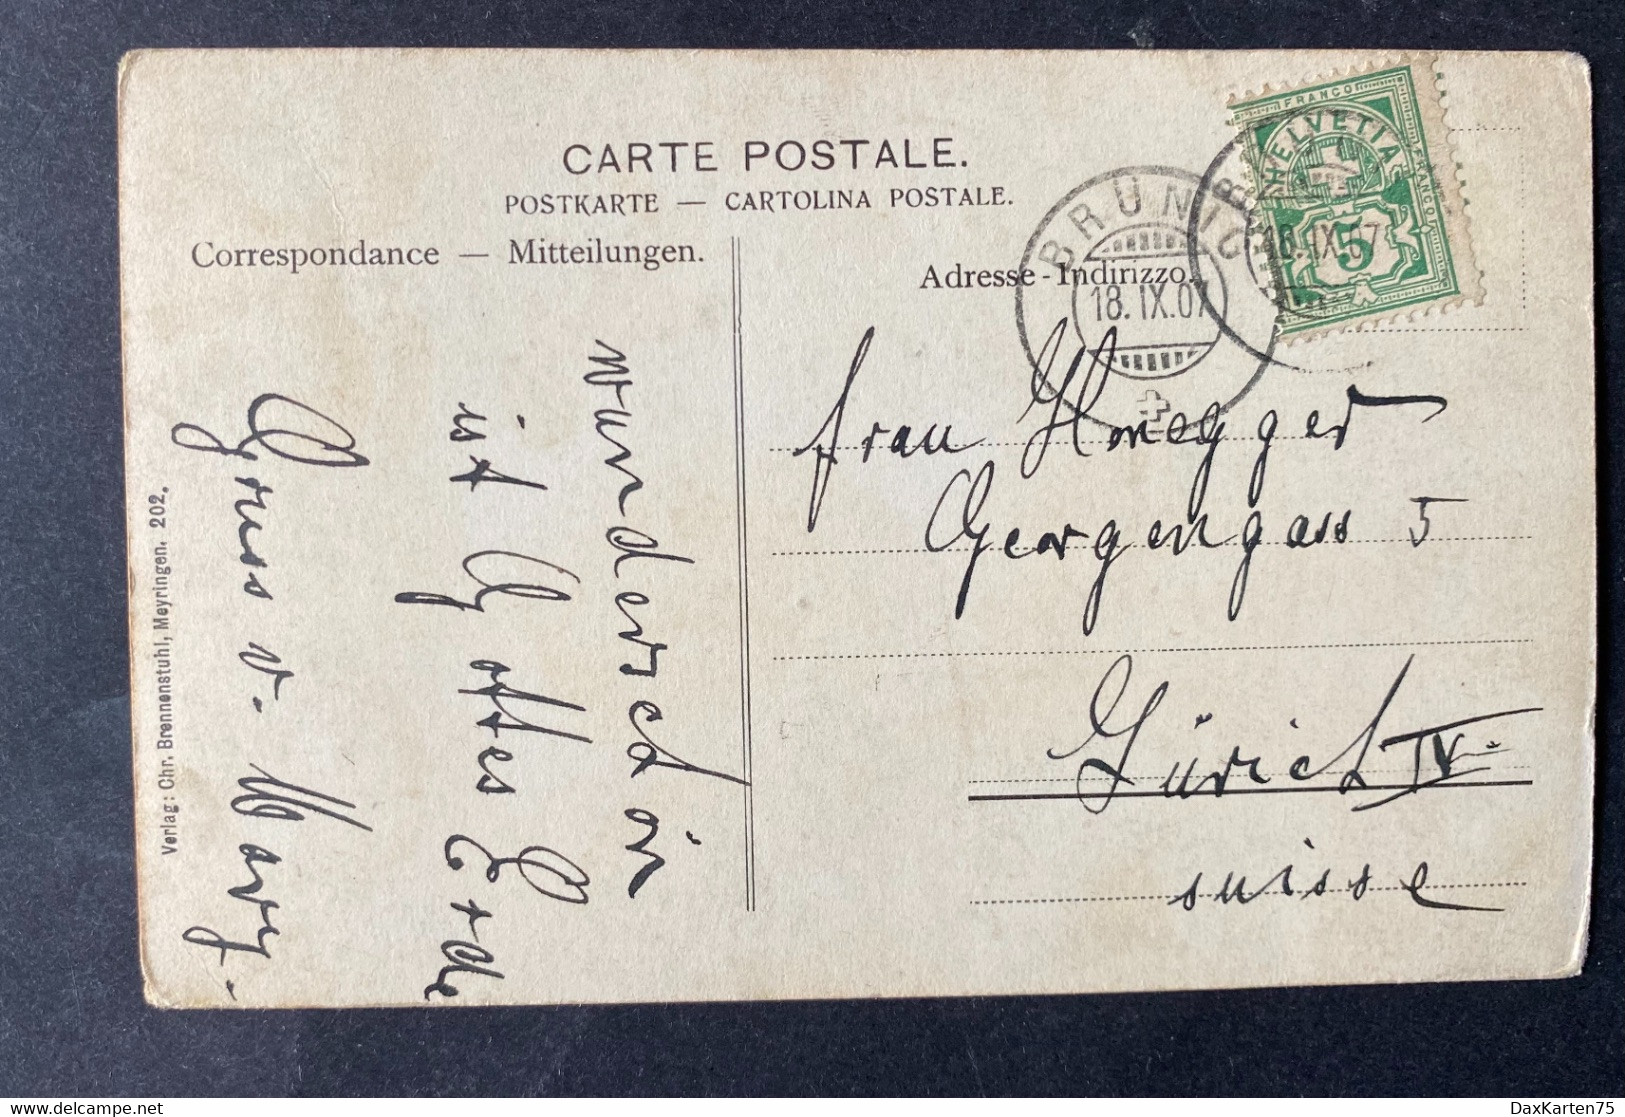 CARTE POSTALE.
POSTKARTE — CARTOLINA POSTALE.
Correspondance — Mitteilungen.
Adresse - Indirizzo.
BRÜNIG
18.IX.07
BR
18.IX.07
FRANCO
HELVETIA
FRANCO
5
wunderschön
ist Gottes Erde
Gruss v. Mary.
Frau Honegger
Georgengass 5
Zürich IV
suisse
Verlag: Chr. Brennenstuhl, Meyringen. 202.
delcampe.net
DaxKarten75